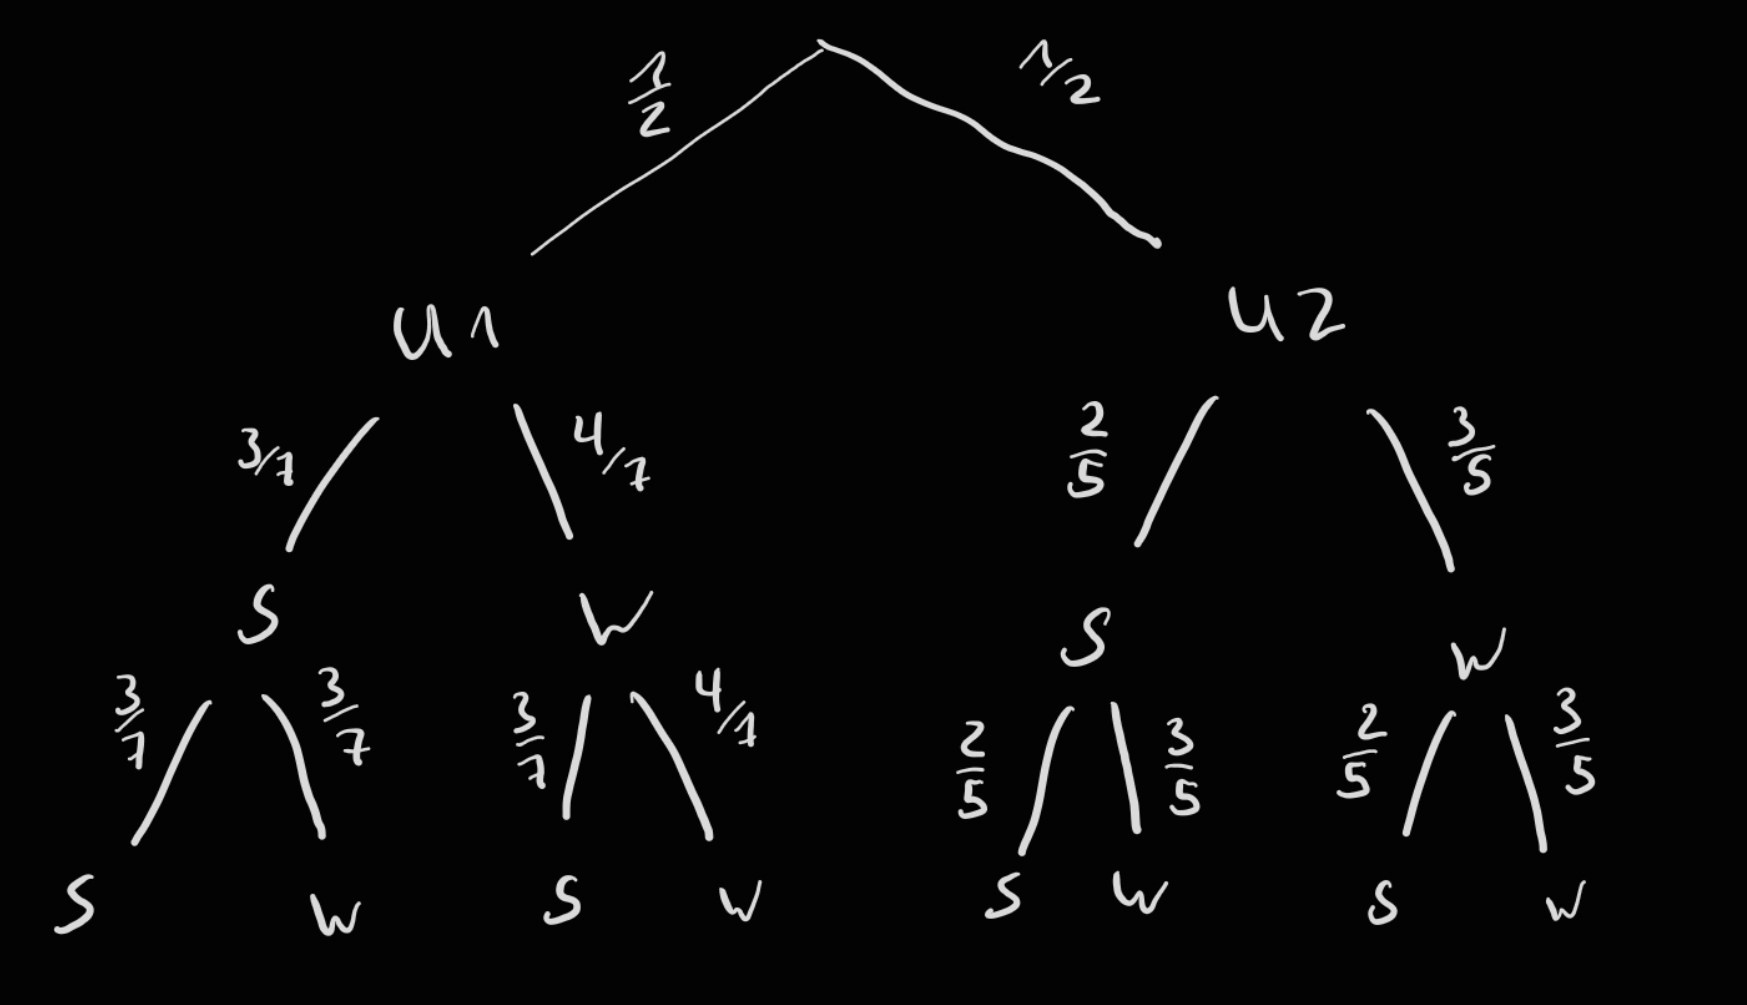 1/2 1/2
U1 U2
3/7 4/7 2/5 3/5
S W S W
3/7 3/7 3/7 4/7 2/5 3/5 2/5 3/5
S W S W S W S W